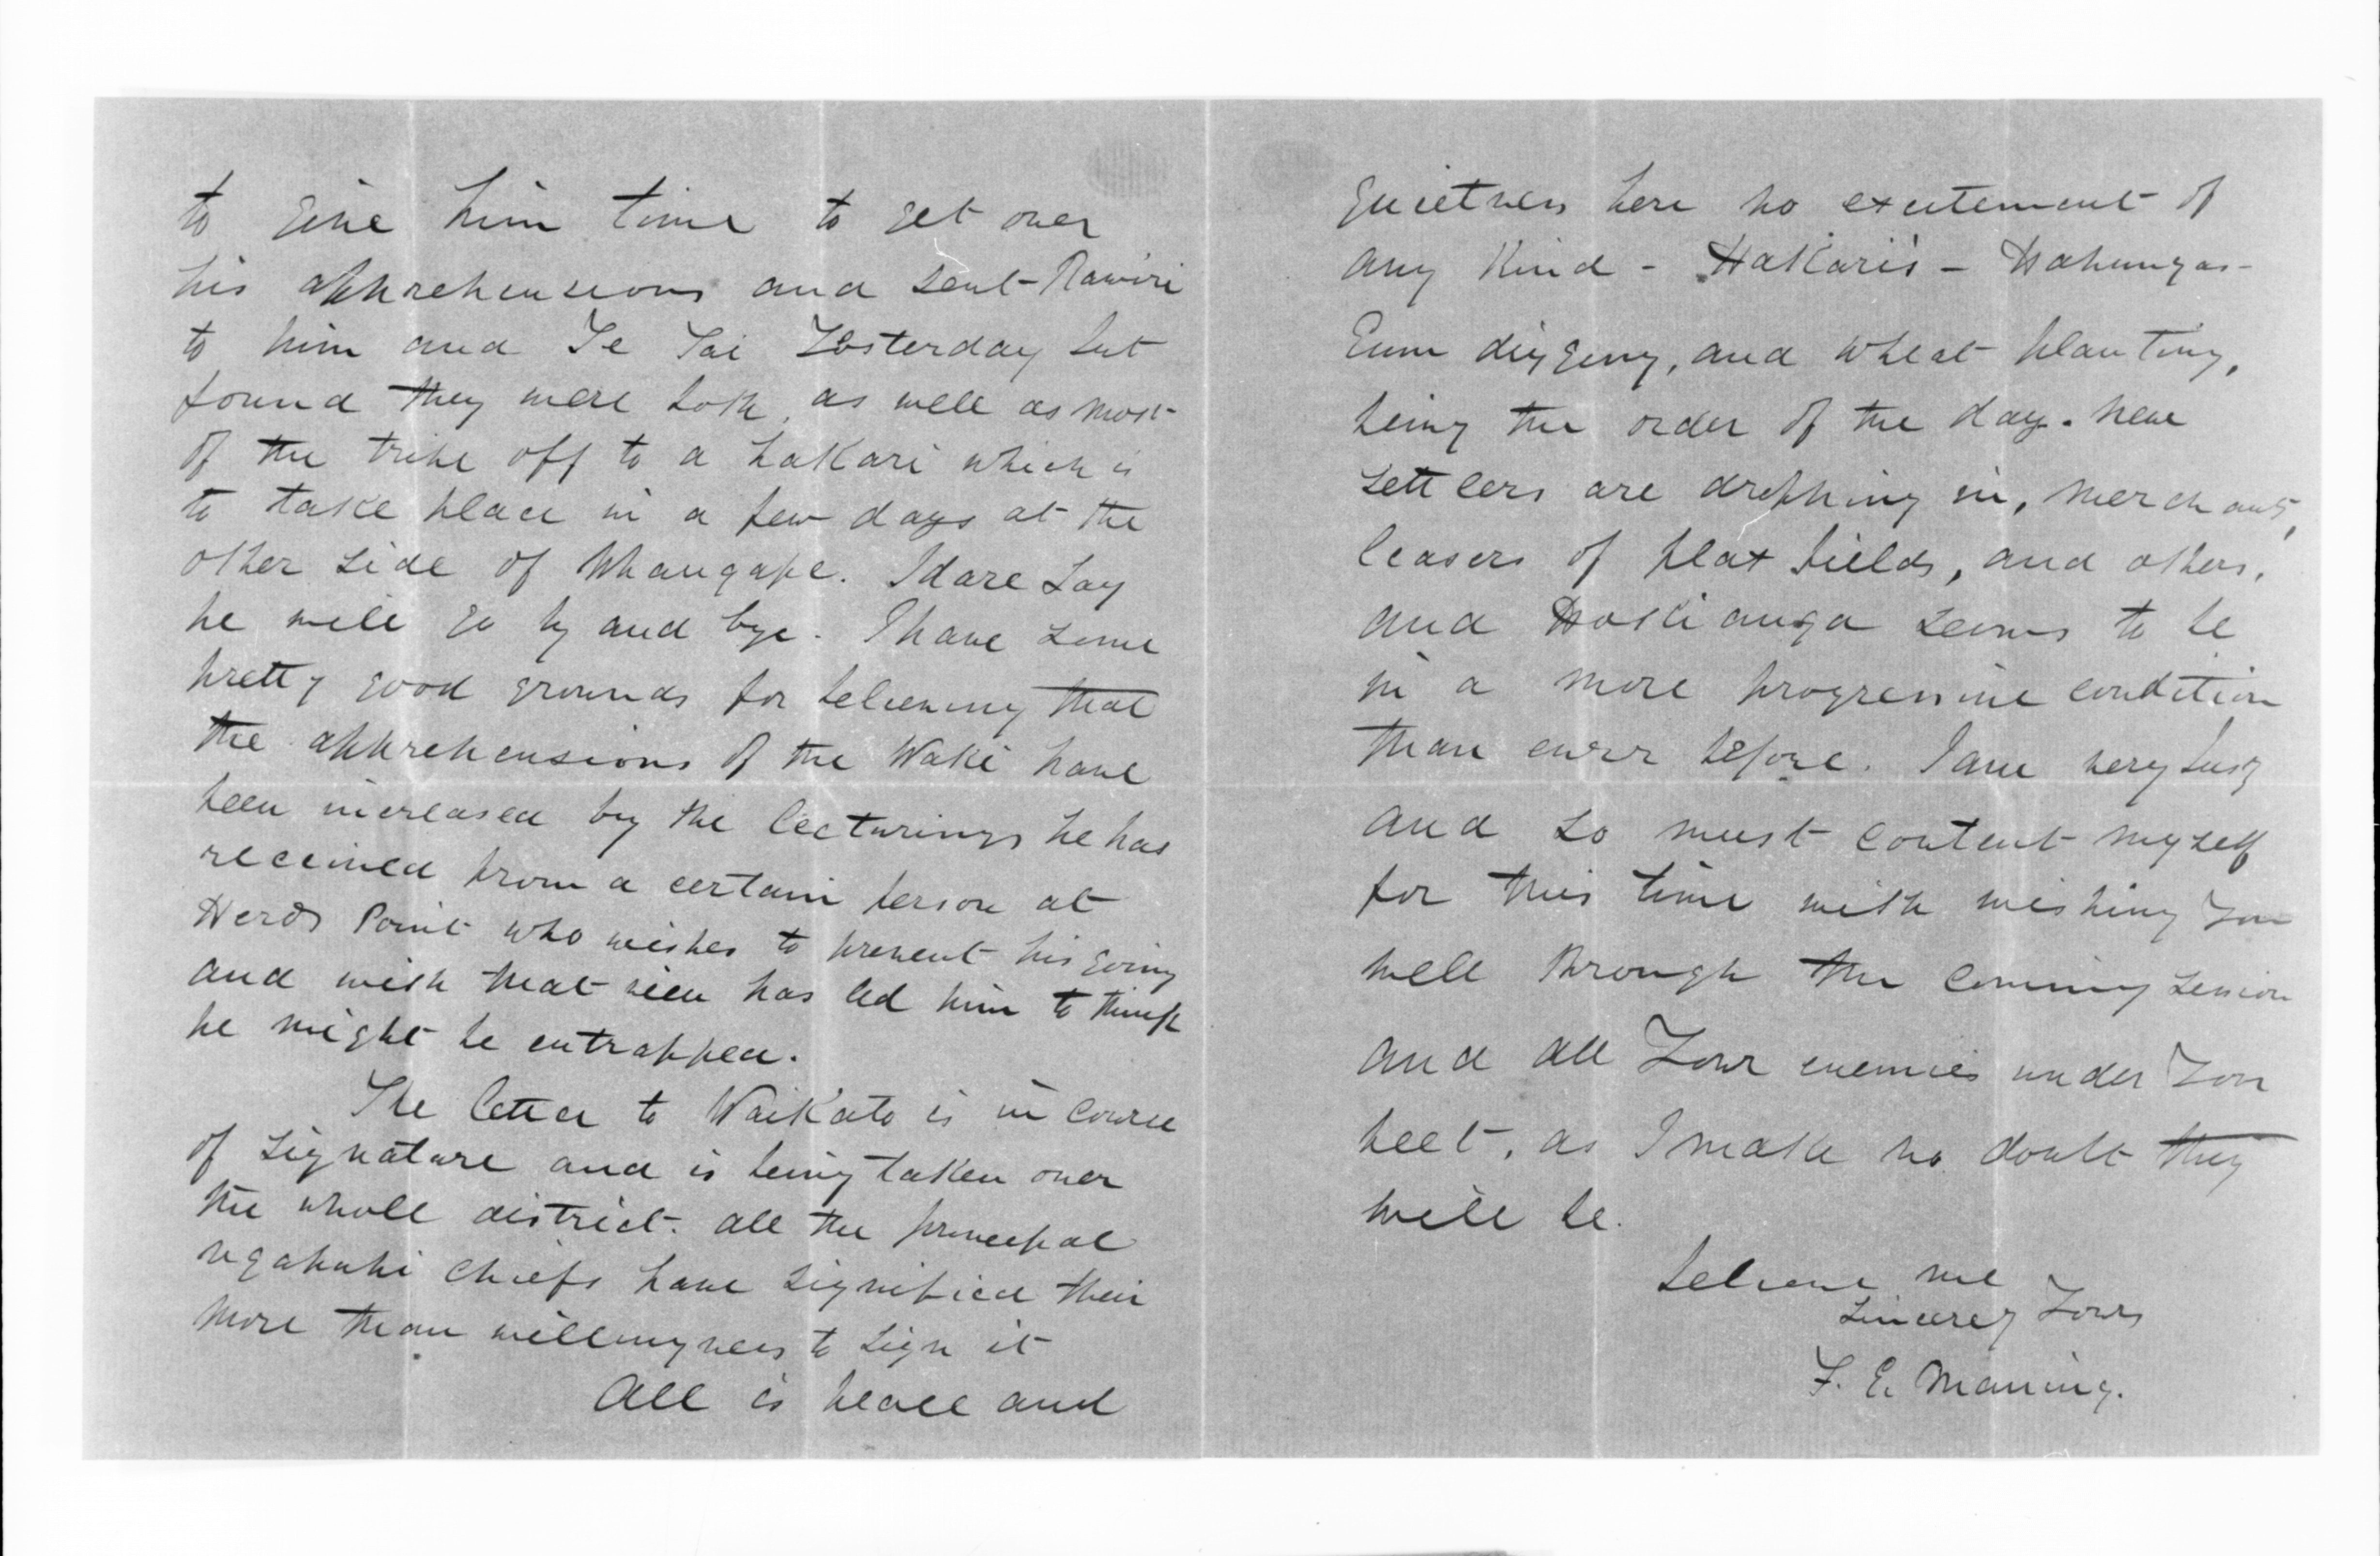 to give him time to get over
his apprehensions and sent Rawiri
to him and Te Tai Yesterday but
found they were both, as well as most
of the tribe off to a hakari which is
to take place in a few days at the
other side of Whangape. I dare say
he will go by and bye. I have some
pretty good grounds for believing that
the apprehensions of the Waka have
been increased by the lecturings he has
received from a certain person at
Herds Point who wishes to prevent his going
and with that view has led him to think
he might be entrapped.
The letter to Waikato is in course
of signature and is being taken over
the whole district. all the principal
ngapuhi chiefs have signified their
more than willingness to sign it
All is peace and
quietness here no excitement of
any kind - Hakaris - Hahungas -
Gum digging, and wheat planting,
being the order of the day. new
settlers are dropping in, merchants,
leasers of flax fields, and others,
and Hokianga seems to be
in a more progressive condition
than ever before. I am very busy
and so must content myself
for this time with wishing you
well through the coming session
and all Your enemies under Your
feet, as I make no doubt they
will be.
believe me
sincerely Yours
F. E. Maning.